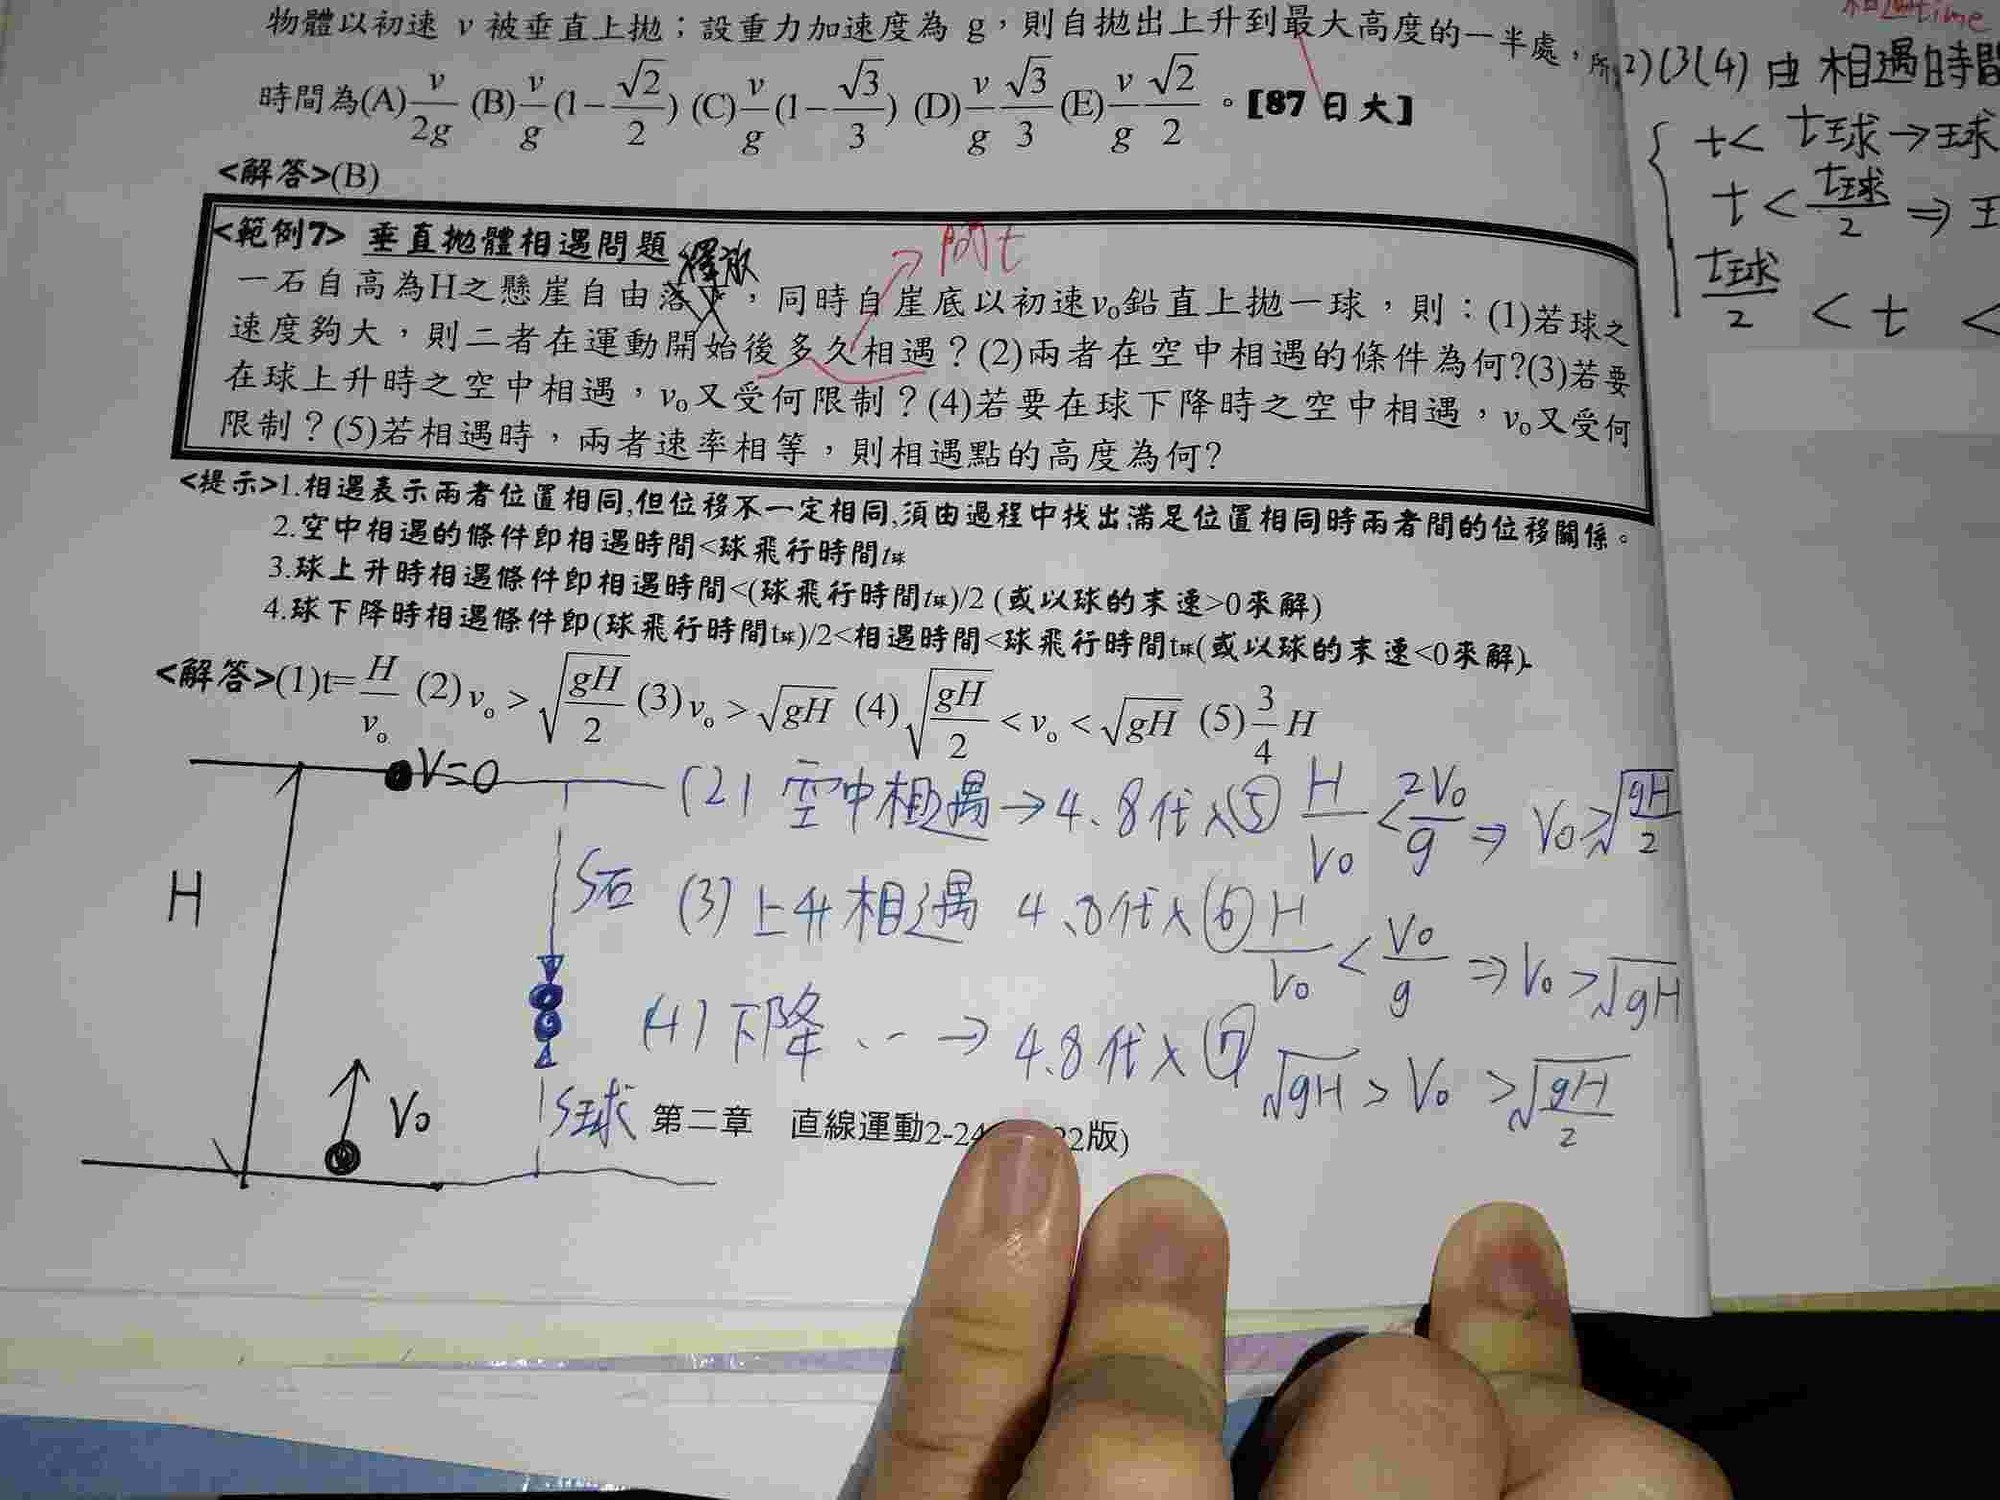 物體以初速 v 被垂直上拋；設重力加速度為 g，則自拋出上升到最大高度的一半處，所
時間為(A)v/2g (B)v/g(1−√2/2) (C)v/g(1−√3/3) (D)v/g √3/3 (E)v/g √2/2。【87 日大】
<解答>(B)
<範例7> 垂直拋體相遇問題
釋放
問t
一石自高為H之懸崖自由落下，同時自崖底以初速v₀鉛直上拋一球，則：(1)若球之
速度夠大，則二者在運動開始後多久相遇？(2)兩者在空中相遇的條件為何?(3)若要
在球上升時之空中相遇，v₀又受何限制？(4)若要在球下降時之空中相遇，v₀又受何
限制？(5)若相遇時，兩者速率相等，則相遇點的高度為何?
<提示>1.相遇表示兩者位置相同,但位移不一定相同,須由過程中找出滿足位置相同時兩者間的位移關係。
2.空中相遇的條件即相遇時間<球飛行時間t球
3.球上升時相遇條件即相遇時間<(球飛行時間t球)/2 (或以球的末速>0來解)
4.球下降時相遇條件即(球飛行時間t球)/2<相遇時間<球飛行時間t球(或以球的末速<0來解).
<解答>(1)t=H/v₀ (2)v₀>√(gH/2) (3)v₀>√gH (4)√(gH/2)<v₀<√gH (5)3/4 H
V=0
H
V₀
S石
S球
(2) 空中相遇→4、8代入⑤ H/V₀<2V₀/g ⇒ V₀>√(gH/2)
(3) 上升相遇 4、8代入⑥ H/V₀<V₀/g ⇒ V₀>√gH
(4) 下降…→ 4、8代入⑦ √gH>V₀>√(gH/2)
第二章 直線運動2-24
22版)
time
2)(3)(4) 由相遇時間
t< t球→球
t< t球/2 ⇒
t球/2 < t <